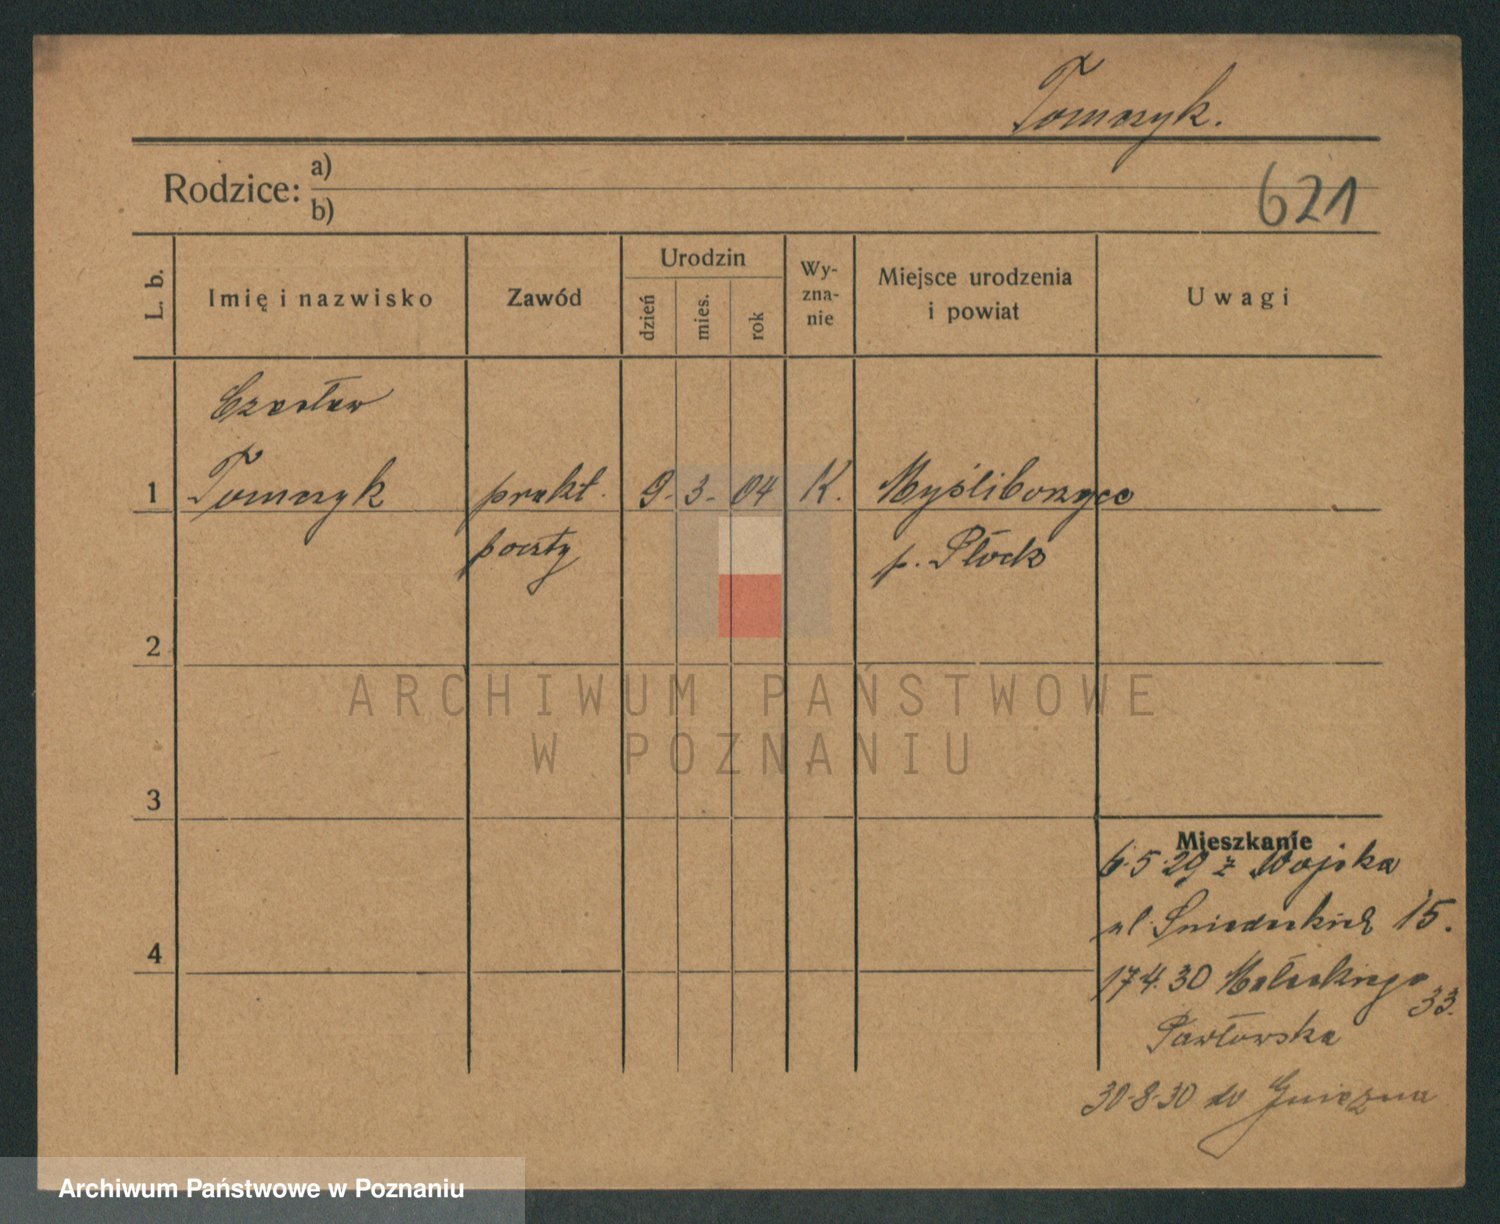 Tomczyk.
Rodzice: a)
b)
621
L. b.
Imię i nazwisko
Zawód
Urodzin
dzień
mies.
rok
Wy-
zna-
nie
Miejsce urodzenia
i powiat
Uwagi
Czesław
1 Tomczyk prakt. 9. 3. 04 K. Myśliborzyce
poczty p. Płock
2
ARCHIWUM PAŃSTWOWE
W POZNANIU
3
Mieszkanie
6.5.29 z Wojska
ul. Śniadeckich 15.
4
17.4.30 Małeckiego
33.
Pawłowska
30-8-30 do Gniezna
Archiwum Państwowe w Poznaniu